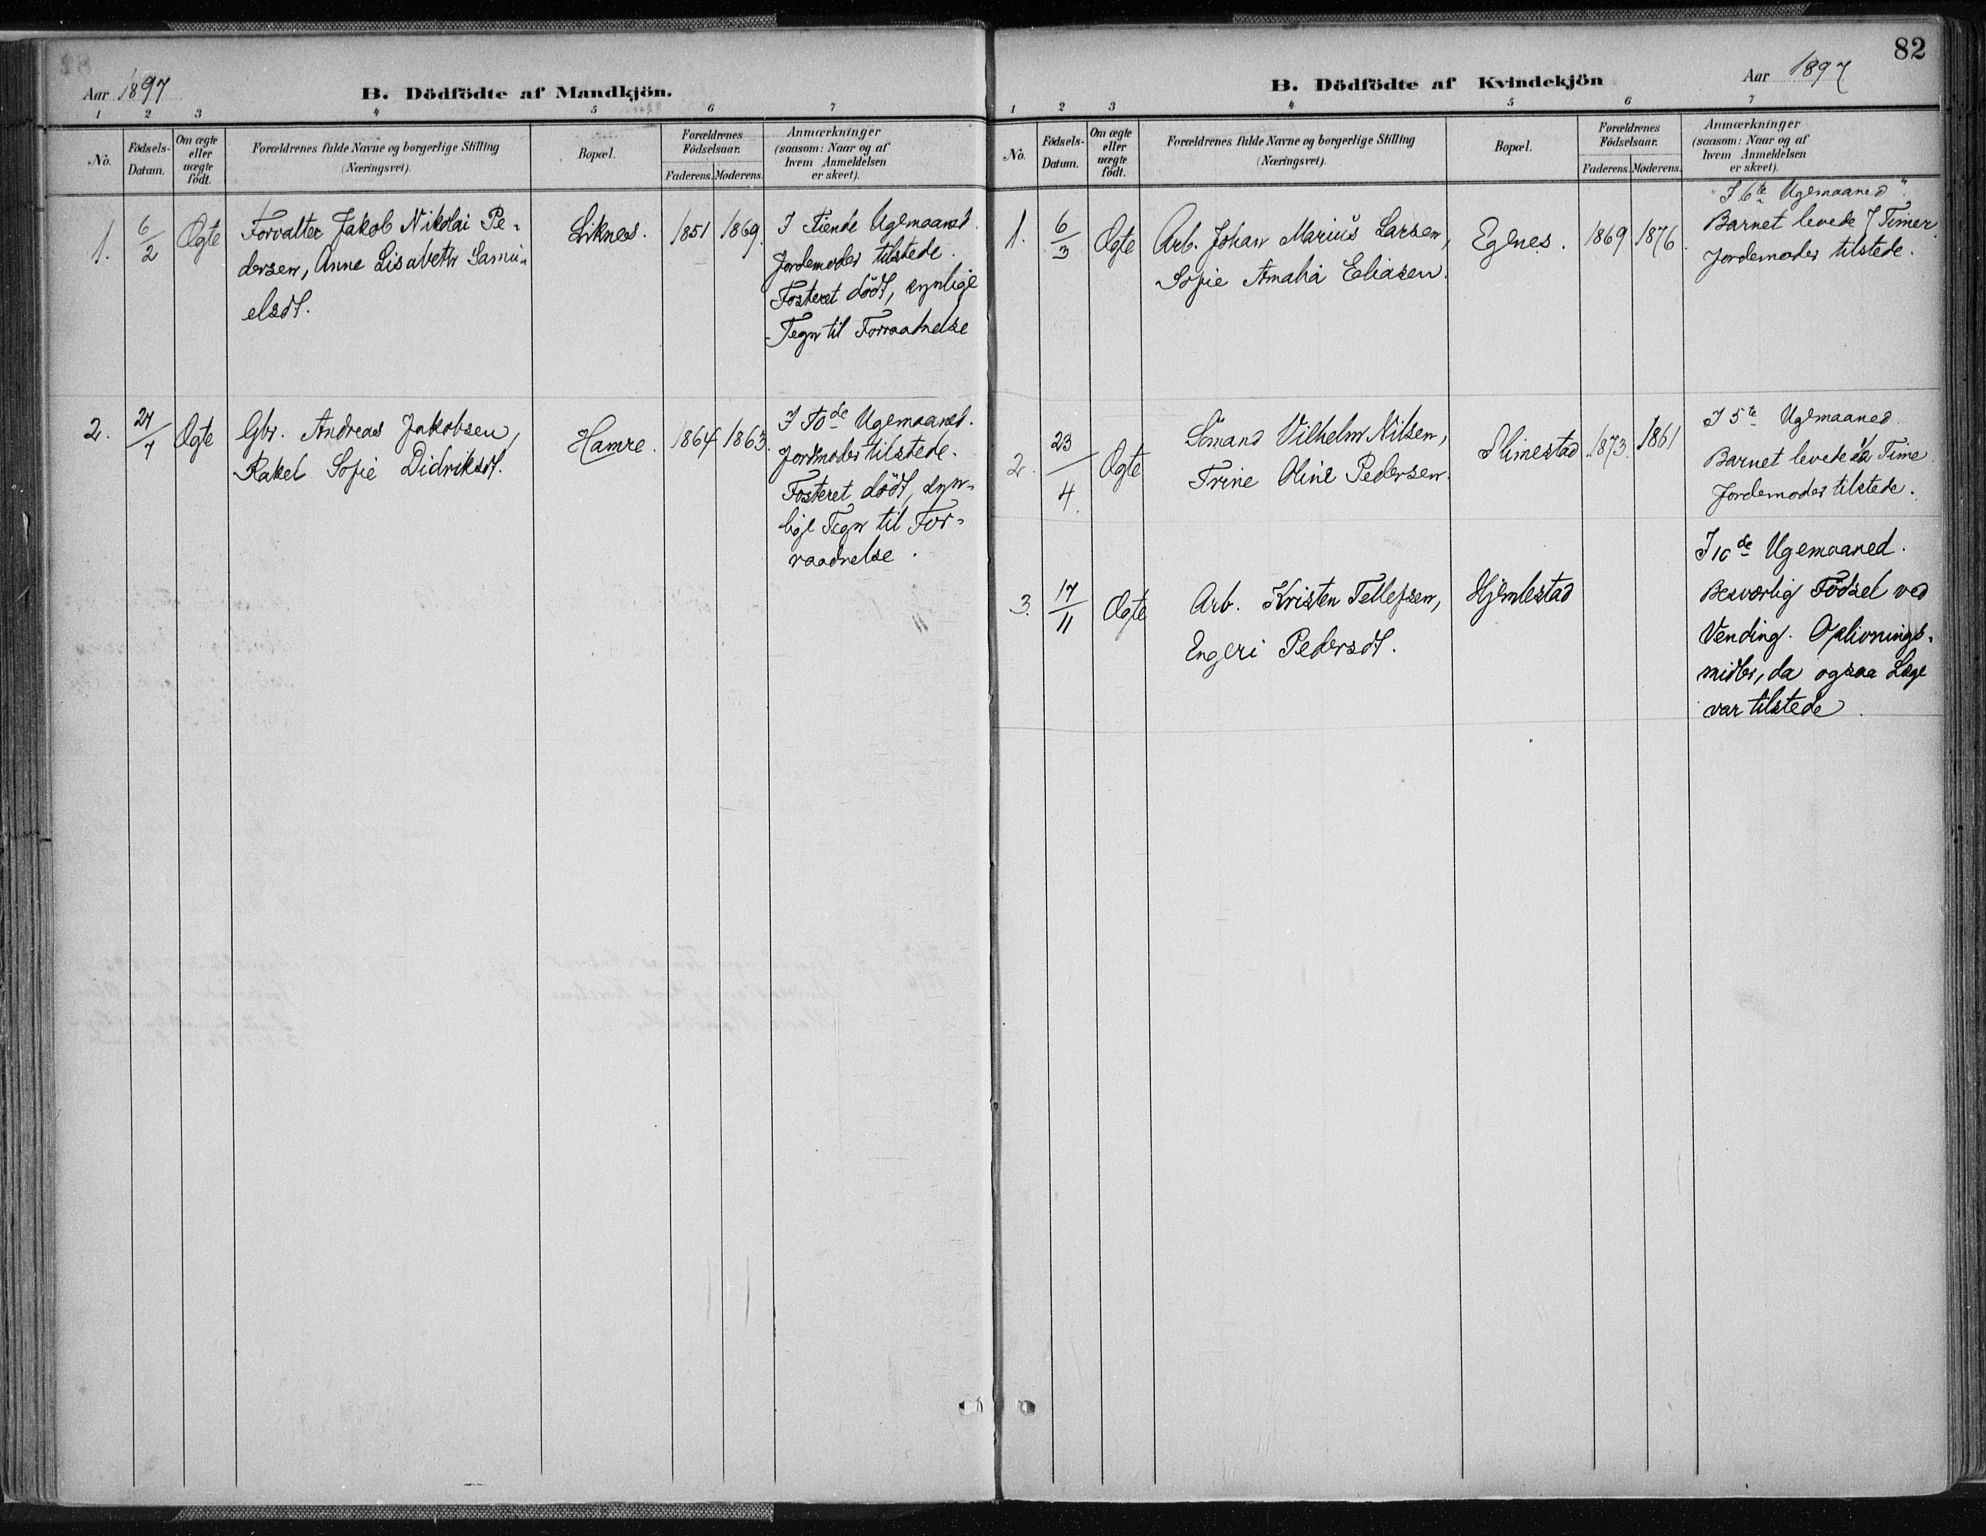 Aar 1897
B. Dödfödte af Mandkjön.
1 2 3 4 5 6 7
No. Födsels-Datum. Om ægte eller uægte födt. Forældrenes fulde Navne og borgerlige Stilling (Næringsvei). Bopæl. Forældrenes Födselsaar. Faderens. Moderens. Anmærkninger (saasom: Naar og af hvem Anmeldelsen er skeet).
1. 6/2 Ægte Forvalter Jakob Nikolai Pe-
dersen, Anne Lisabeth Samu-
elsdt.
Liknes. 1851 1869.
I Tiende Ugemaaned.
Jordemoder tilstede.
Fosteret dödt, synlige
Tegn til Forraadnelse
2. 27/7 Ægte Gbr. Andreas Jakobsen,
Rakel Sofie Didriksdt.
Hamre. 1864 1863.
I 10de Ugemaaned.
Jordmoder tilstede.
Fosteret dödt, syn-
lige Tegn til For-
raadnelse.
82
Aar 1897
B. Dödfödte af Kvindekjön
1 2 3 4 5 6 7
No. Födsels-Datum. Om ægte eller uægte födt. Forældrenes fulde Navne og borgerlige Stilling (Næringsvei). Bopæl. Forældrenes Födselsaar. Faderens. Moderens. Anmærkninger (saasom: Naar og af hvem Anmeldelsen er skeet).
1. 6/3 Ægte Arb. Johan Marius Larsen,
Sofie Amalia Eliasen.
Egenes. 1869 1876.
"I 6te Ugemaaned".
Barnet levede 7 Timer.
Jordemoder tilstede.
2. 23/4 Ægte Sömand Vilhelm Nilsen,
Trine Oline Pedersen.
Slimestad 1873. 1861
I 5te Ugemaaned.
Barnet levede 1/2 Time
Jordemoder tilstede.
3. 17/11 Ægte Arb. Kristen Tellefsen,
Engeri Pedersdt.
Hjemlestad
I 10de Ugemaaned.
Besværlig Födsel ved
Vending. Oplivnings-
midler, da ogsaa Læge
var tilstede.